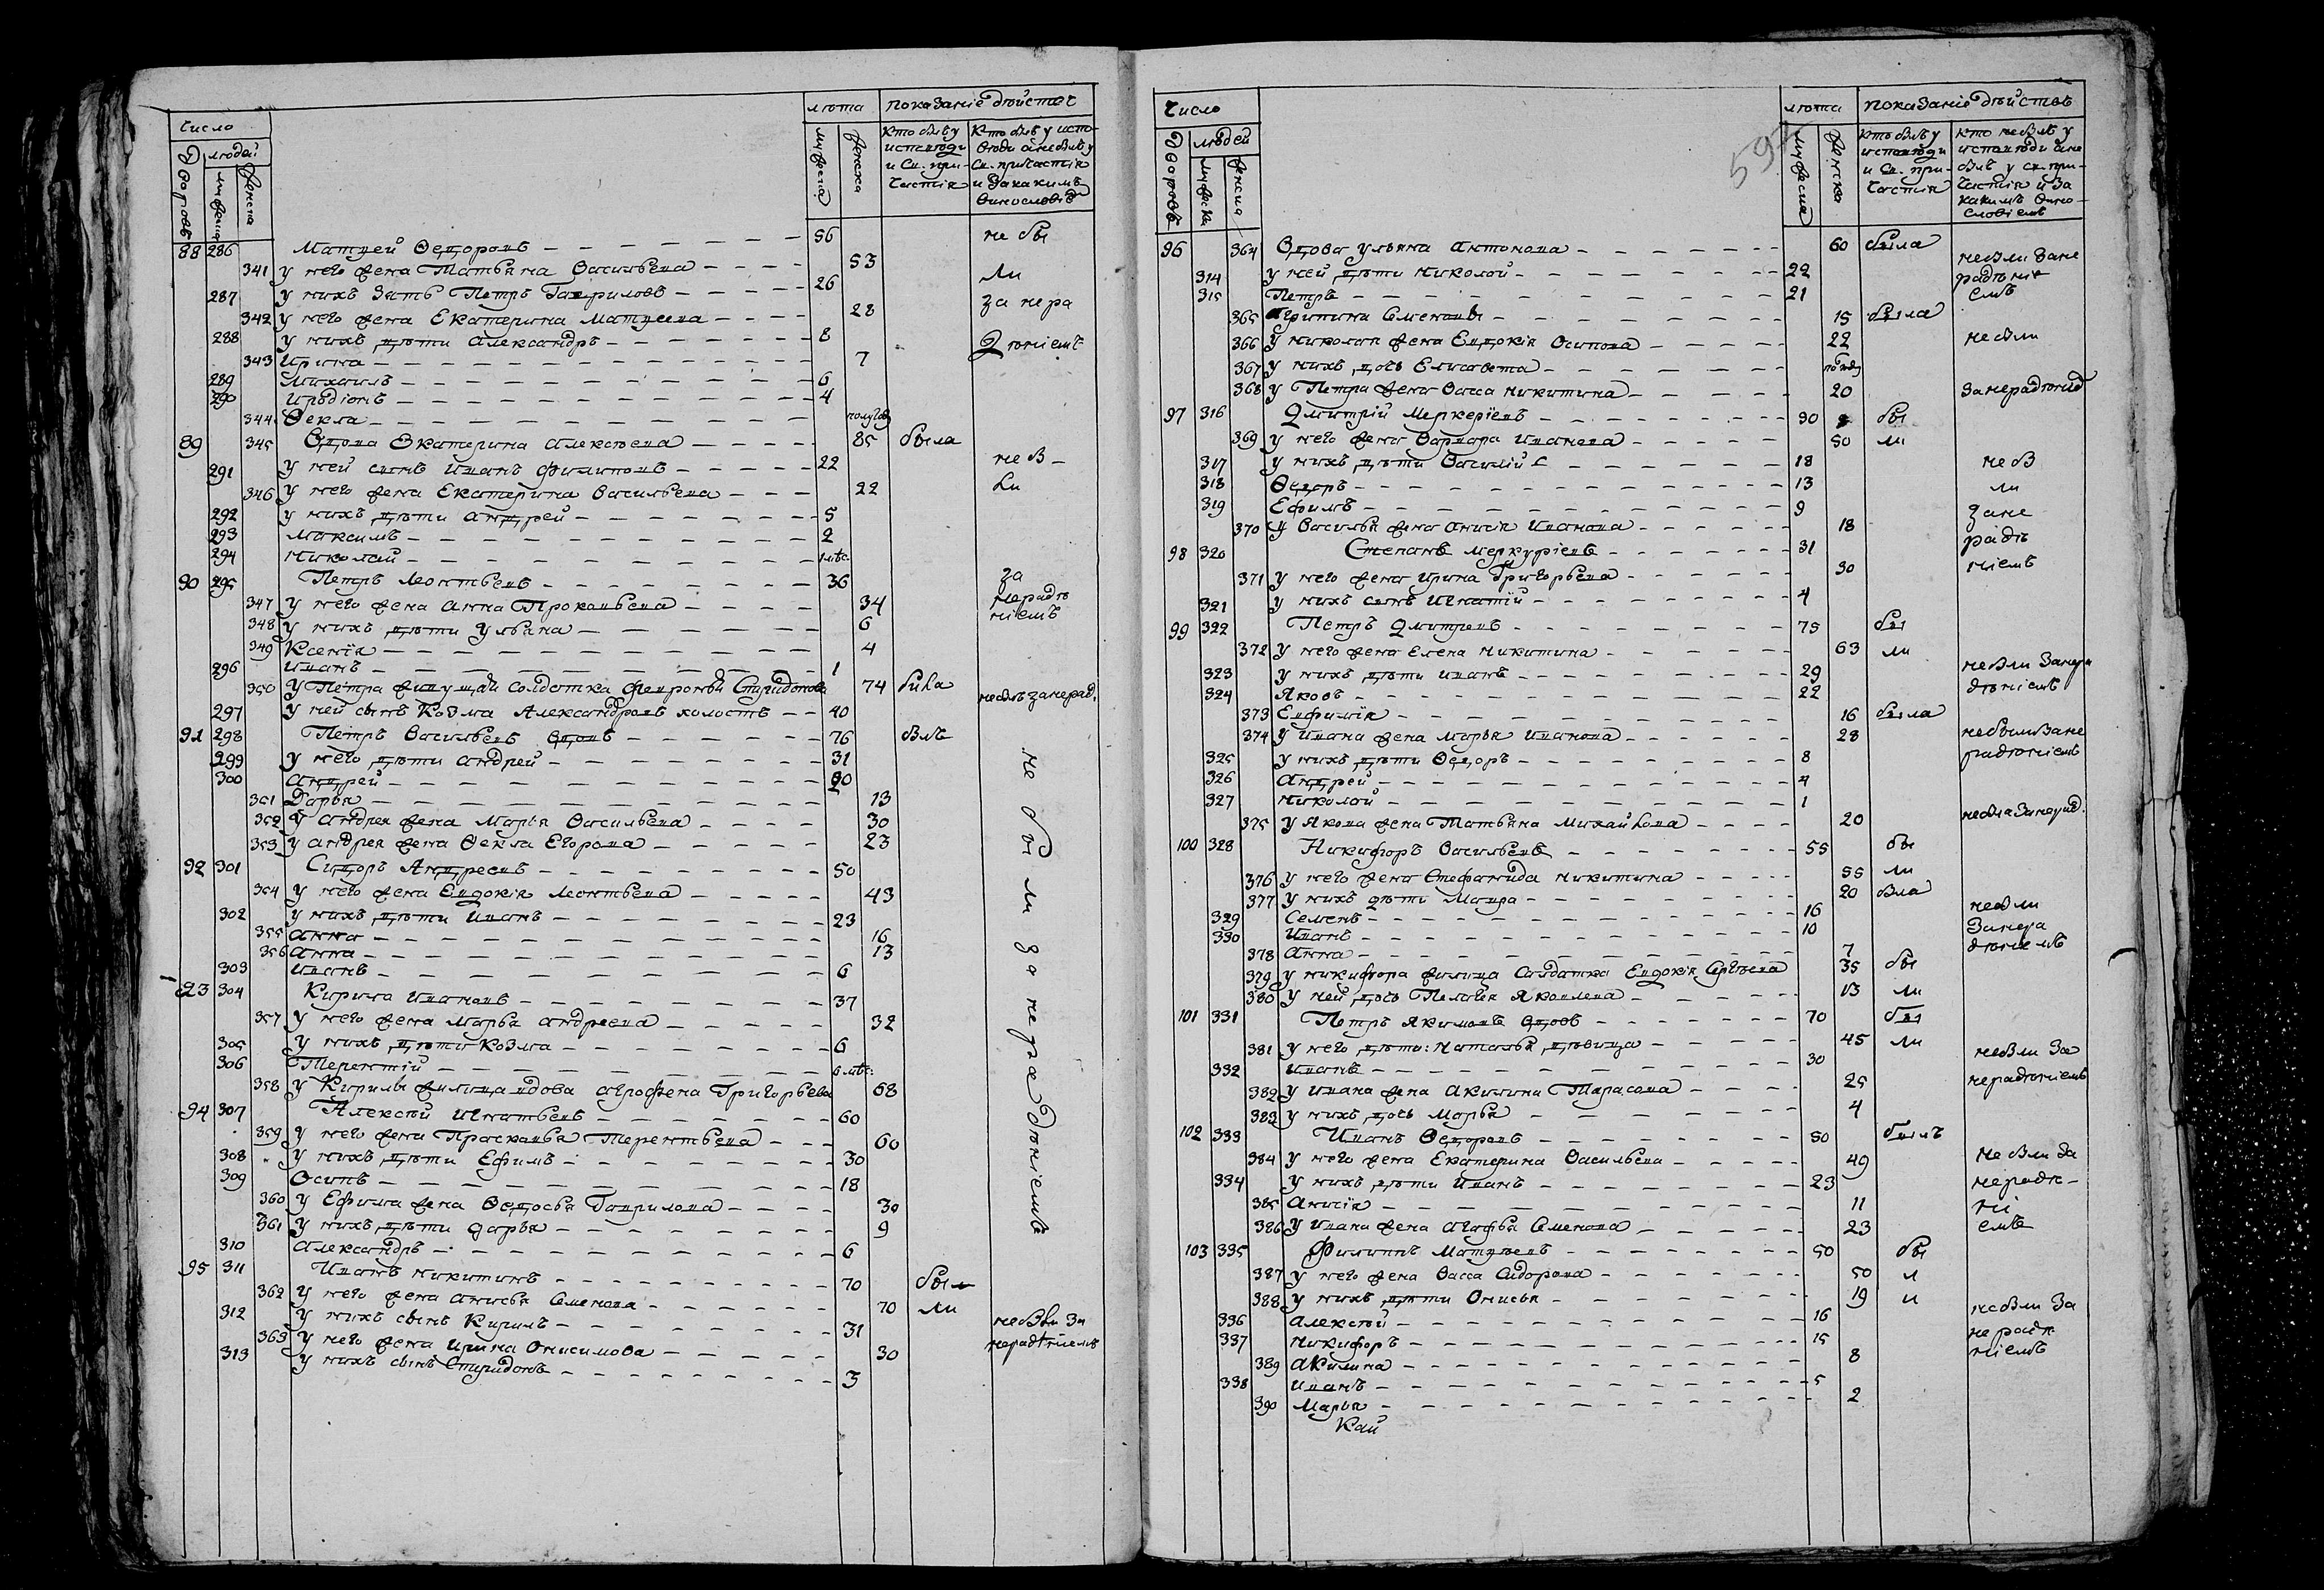 Число
лѣта показаніе дѣйствъ
Дворовъ людей
мужеска женска
мужеска женска
кто былъ у исповѣди и св. причастія
88 286 Матвей Ѳедоровъ 56 не бы
341 у него жена Татьяна Васильева 53
287 у нихъ зять Петръ Гавриловъ 26 ли
342 у него жена Екатерина Матвеева 28 за нера
288 у нихъ дѣти Александръ 8
343 Ирина 7 дѣніемъ
289 Михаилъ 6
290 Иродіонъ 4
344 Ѳекла полугод
89 345 Вдова Екатерина Алексѣева 85 была
291 у ней сынъ Иванъ Филиповъ 22 не б
346 у него жена Екатерина Васильева 22 ли
292 у нихъ дѣти Андрей 5
293 Максимъ 2
294 Николай
90 295 Петръ Леонтьевъ 36 за
347 у него жена Анна Прокопьева 34 нерадѣ
348 у нихъ дѣти Ульяна 6 ніемъ
349 Ксенія 4
296 Иванъ 1
350 у Петра живущай солдатка Февронья Спиридонова 74 была
297 у ней сынъ Козма Александровъ холостъ 40 небылъ занерад.
91 298 Петръ Васильевъ вдовъ 76 былъ
299 у него дѣти Андрей 31
300 Андрей 20
351 Дарья 13
352 у Андрея жена Марья Васильева 30
353 у Андрея жена Ѳекла Егорова 23
не были за нерадѣніемъ
92 301 Сидоръ Андреевъ 50
354 у него жена Евдокія Леонтьева 43
302 у нихъ дѣти Иванъ 23
355 Анна 16
356 Анна 13
303 Иванъ 6
93 304 Кирила Ивановъ 37
357 у него жена Марья Андреева 32
305 у нихъ дѣти Козма 6
306 Терентій
358 у Кирилы жилица вдова Агрофена Григорьева 68
94 307 Алексѣй Игнатьевъ 60
359 у него жена Прасковья Терентьева 60
308 у нихъ дѣти Ефимъ 30
309 Осипъ 18
360 у Ефима жена Ѳедосья Гаврилова 30
361 у нихъ дѣти Дарья 9
310 Александръ 6
95 311 Иванъ Никитинъ 70 бы
362 у него жена Анисья Семенова 70 ли
312 у нихъ сынъ Кирилъ 31 небыли за
363 у него жена Ирина Онисимова 30 нерадѣніемъ
313 у нихъ сынъ Спиридонъ 3
Число
лѣта показаніе дѣйствъ
Дворовъ людей
мужеска женска
мужеска женска
кто былъ у исповѣди и св. причастія
кто небылъ у исповѣди ане былъ у св. причастія и за какимъ винословіемъ
597
96 364 Вдова Ульяна Антонова 60 была
314 у ней дѣти Николай 22 небыли зане
315 Петръ 21 радѣніемъ
365 Агрипина Семенова 15 была
366 у Николая жена Евдокія Осипова 22 небыли
367 у нихъ дочь Елисавета
368 у Петра жена Васса Никитина 20 занерадѣніе
97 316 Дмитрій Меркеріевъ 30 бы
369 у него жена Варвара Иванова 50 ли
317 у нихъ дѣти Василій 18 не б
318 Ѳедоръ 13 ли
319 Ефимъ 9 зане
370 у Василья жена Анисія Иванова 18
98 320 Степанъ Меркуріевъ 31 радѣ
371 у него жена Ирина Григорьева 30 ніемъ
321 у нихъ сынъ Игнатій 4
99 322 Петръ Дмитревъ 75 бы
372 у него жена Елена Никитина 63 ли
323 у нихъ дѣти Иванъ 29 небыли занера
324 Яковъ 22 дѣніемъ
373 Евфимія 16 была
374 у Ивана жена Марья Иванова 28 небыли зане
325 у нихъ дѣти Ѳедоръ 8 радѣніемъ
326 Андрей 4
327 Николай 1
375 у Якова жена Татьяна Михайлова 20 небыла занерад.
100 328 Никифоръ Васильевъ 55 бы
376 у него жена Стефанида Никитина 55 ли
377 у нихъ дѣти Мавра 20 была
329 Семенъ 16 небыли
330 Иванъ 10 занера
378 Анна 7 дѣніемъ
379 у Никифора жилица салдатка Евдокія Сергѣева 35 бы
380 у ней дочь Пелагея Яковлева 13 ли
101 331 Петръ Якимовъ вдовъ 70 бы
381 у него дѣти: Наталья дѣвица 45 ли
332 Иванъ 30 небыли за
382 у Ивана жена Акилина Тарасова 25 нерадѣніемъ
383 у нихъ дочь Марья 4
102 333 Иванъ Ѳедоровъ 50 былъ
384 у него жена Екатерина Васильева 49 не были за
334 у нихъ дѣти Иванъ 23 нерадѣ-
385 Анисія 11 ні
386 у Ивана жена Агафья Семенова 23 емъ
103 335 Филиппъ Матвѣевъ 50 бы
387 у него жена Васса Сидорова 50 л
388 у нихъ дѣти Онисья 19 и
336 Алексѣй 16 небыли за
337 Никифоръ 15 нерадѣ
389 Акилина 8 ніемъ
338 Иванъ 5
390 Марья 2
Кай